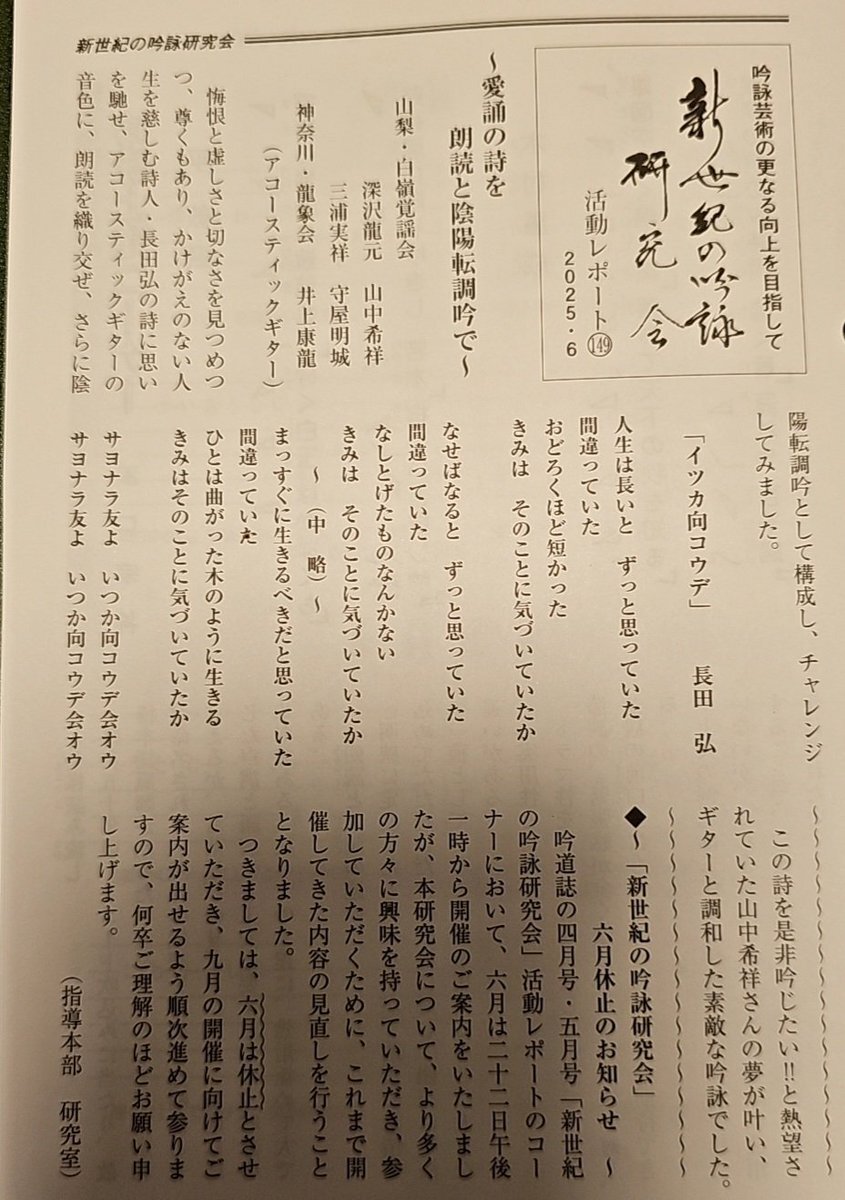 新世紀の吟詠研究会
吟詠芸術の更なる向上を目指して
新世紀の吟詠
研究会
活動レポート149
2025.6
～愛誦の詩を
朗読と陰陽転調吟で～
山梨・白嶺覚謡会
深沢龍元 山中希祥
三浦実祥 守屋明城
神奈川・龍象会 井上康龍
（アコースティックギター）
悔恨と虚しさと切なさを見つめつ
つ、尊くもあり、かけがえのない人
生を慈しむ詩人・長田弘の詩に思い
を馳せ、アコースティックギターの
音色に、朗読を織り交ぜ、さらに陰
陽転調吟として構成し、チャレンジ
してみました。
「イツカ向コウデ」 長田 弘
人生は長いと ずっと思っていた
間違っていた
おどろくほど短かった
きみは そのことに気づいていたか
なせばなると ずっと思っていた
間違っていた
なしとげたものなんかない
きみは そのことに気づいていたか
～（中 略）～
まっすぐに生きるべきだと思っていた
間違っていた
ひとは曲がった木のように生きる
きみはそのことに気づいていたか
サヨナラ友よ いつか向コウデ会オウ
サヨナラ友よ いつか向コウデ会オウ
～～～～～～～～～～～～～～～～
この詩を是非吟じたい!!と熱望さ
れていた山中希祥さんの夢が叶い、
ギターと調和した素敵な吟詠でした。
～～～～～～～～～～～～～～～～
◆～「新世紀の吟詠研究会」
六月休止のお知らせ ～
吟道誌の四月号・五月号「新世紀
の吟詠研究会」活動レポートのコー
ナーにおいて、六月は二十二日午後
一時から開催のご案内をいたしまし
たが、本研究会について、より多く
の方々に興味を持っていただき、参
加していただくために、これまで開
催してきた内容の見直しを行うこと
となりました。
つきましては、六月は休止とさせ
ていただき、九月の開催に向けてご
案内が出せるよう順次進めて参りま
すので、何卒ご理解のほどお願い申
し上げます。
（指導本部 研究室）